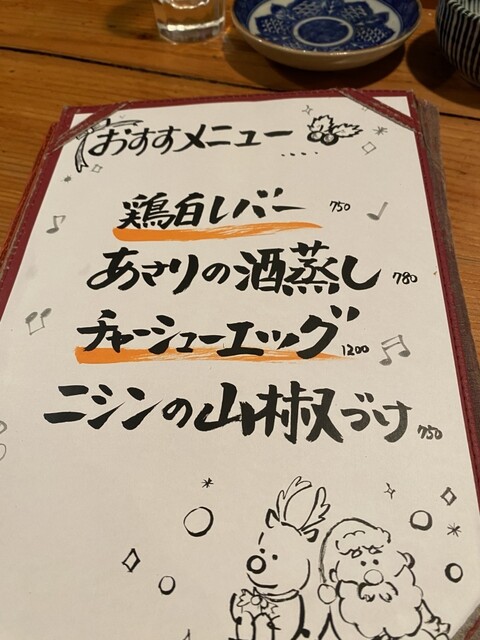 おすすメニュー
鶏白レバー 750
あさりの酒蒸し 780
チャーシューエッグ 1200
ニシンの山椒づけ 750